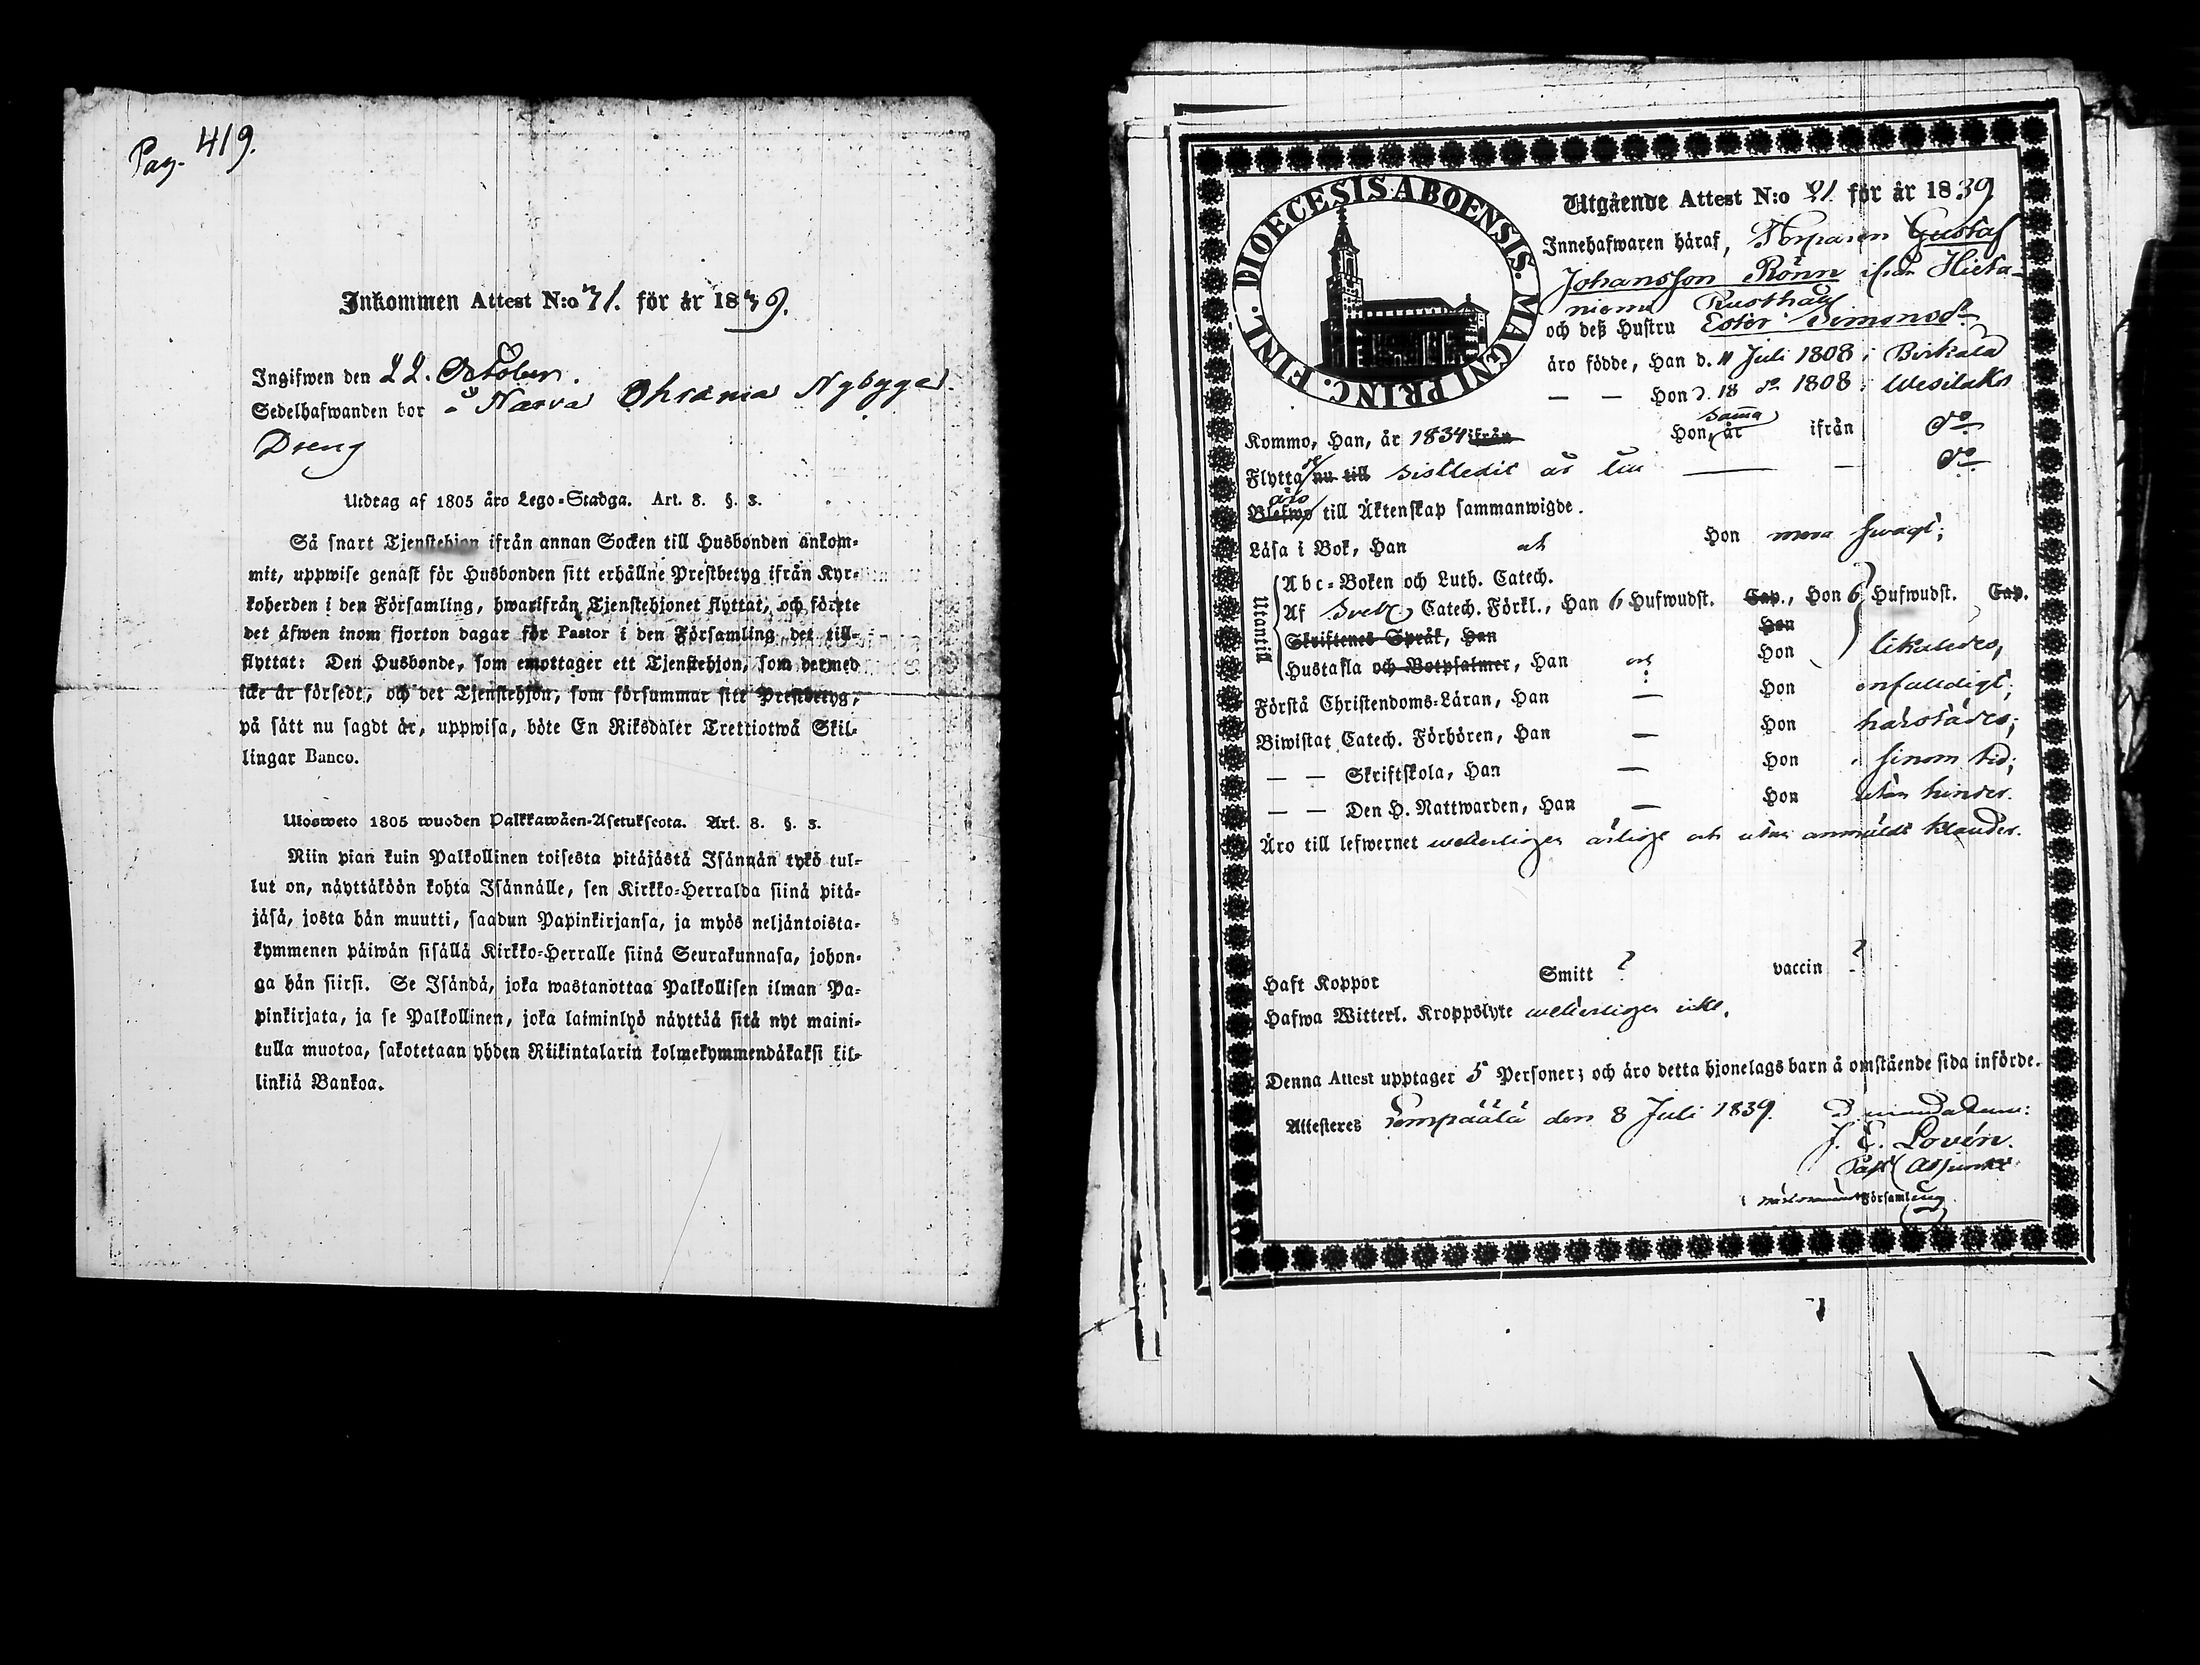 Pag. 419.
Inkommen Attest N:o 71. för år 1839.
Ingifwen den 22. October.
Sedelhafwanden bor å Narva Ohrania Nybygge
Dreng
Utdrag af 1805 åro Lego-Stadga. Art. 8. §. 3.
Så snart Tjenstehjon ifrån annan Socken till Husbonden ankom-
mit, uppwise genast för Husbonden sitt erhållne Prestbetyg ifrån Kyr-
koherden i den Församling, hwarifrån Tjenstehjonet flyttat, och förete
det äfwen inom fjorton dagar för Pastor i den Församling det till-
flyttat: Den Husbonde, som emottager ett Tjenstehjon, som dermed
icke är försedt, och det Tjenstehjon, som försummar sitt Prestbetyg,
på sätt nu sagdt är, uppwisa, böte En Riksdaler Trettiotwå Skil-
lingar Banco.
Ulosweto 1805 wuoden Palkkawäen-Asetuksesta. Art. 8. §. 3.
Niin pian kuin Palkollinen toisesta pitäjästä Isännän tykö tul-
lut on, näyttäköön kohta Isännälle, sen Kirkko-Herralda siinä pitä-
jäsä, josta hän muutti, saadun Papinkirjansa, ja myös neljäntoista-
kymmenen päiwän sisällä Kirkko-Herralle siinä Seurakunnasa, johon-
ga hän siirsi. Se Isändä, joka wastanottaa Palkollisen ilman Pa-
pinkirjata, ja se Palkollinen, joka laiminlyö näyttää sitä nyt maini-
tulla muotoa, sakotetaan yhden Riikintalarin kolmekymmendäkaksi kil-
linkiä Bankoa.
DIOECESIS ABOENSIS. MAGNI PRINC. FINL.
Utgående Attest N:o 21 för år 1839
Innehafwaren häraf, Torparen Gustaf
Johansson Rönn ifrån Hieta-
niemi Rusthåll
och deß Hustru Ester Simonsdr
äro födde, Han d. 11 Juli 1808 i Birkala
— — Hon d. 18 do 1808 i Wesilaks
Kommo, Han, år 1834 ifrån Hon, samma år ifrån do
Flytta de nu till sistledit år till — — do
Blefwo äro till Äktenskap sammanwigde.
Läsa i Bok, Han och Hon mera swagt;
Utantill
Abc-Boken och Luth. Catech.
Af Sveb. Catech. Förkl., Han 6 Hufwudst. Cap., Hon 6 Hufwudst. Cap.
Skriftenes Språk, Han Hon
Hustafla och Botpsalmer, Han och Hon likaledes,
Förstå Christendoms-Läran, Han — Hon enfaldigt;
Biwistat Catech. Förhören, Han — Hon härstädes;
— — Skriftskola, Han — Hon i sinom tid;
— — Den H. Nattwarden, Han — Hon utan hinder.
Äro till lefwernet weterligen ärlige och utan anmäldt klander.
Haft Koppor Smitt ? vaccin ?
Hafwa Witterl. Kroppslyte weterligen icke.
Denna Attest upptager 5 Personer; och äro detta hjonelags barn å omstående sida införde.
Attesteras Lempäälä den 8 Juli 1839. ad mandatum:
J. E. Lovén.
Past. Adjunkt
i närbenämnde Församling